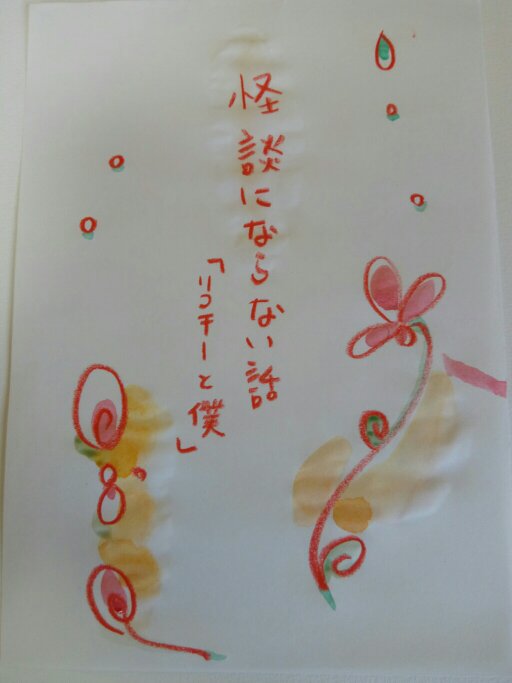 怪談にならない話
「リコチーと僕」